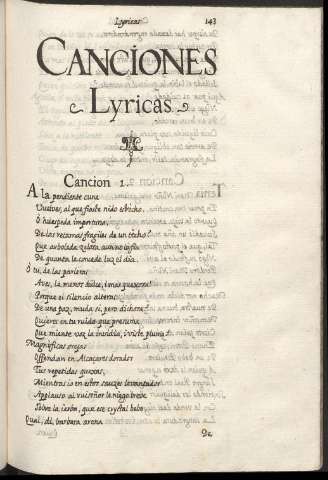 Lyricas 143
CANCIONES
Lyricas
Cancion 1.
A la pendiente cuna
Vuelves, al que fiaste nido estrecho,
Ó huespeda importuna,
De las retamas fragiles de un techo?
Que arbolada
De quanta le concede luz el dia.
O tu, de las parleras
Aves, la menos dulce, i mas quexosa!
Porque el silencio alteras
De una paz, muda si, pero dichosa?
Quieres en tu ruido que presuma,
Que miente voz la invidia, i viste pluma
Magnificas orejas
Offendan en Alcaçares dorados
Tus repetidas quexas,
Mientras io en estos sauzes levantados
Applauso al ruiseñor le niego breve
Sobre la ierba, que ese crystal bebe.
Qual, di, barbara arena
De